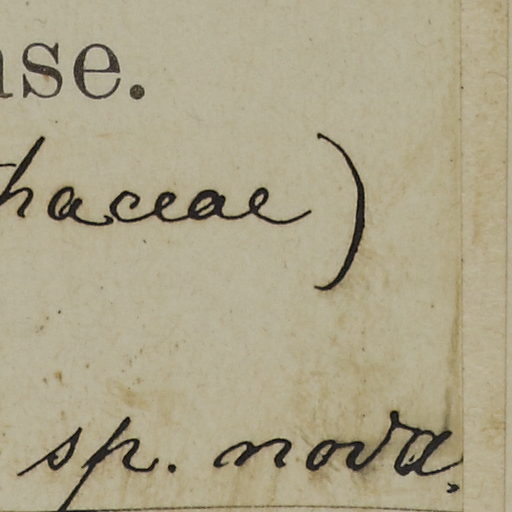 ase.
thaceae)
sp. nova.